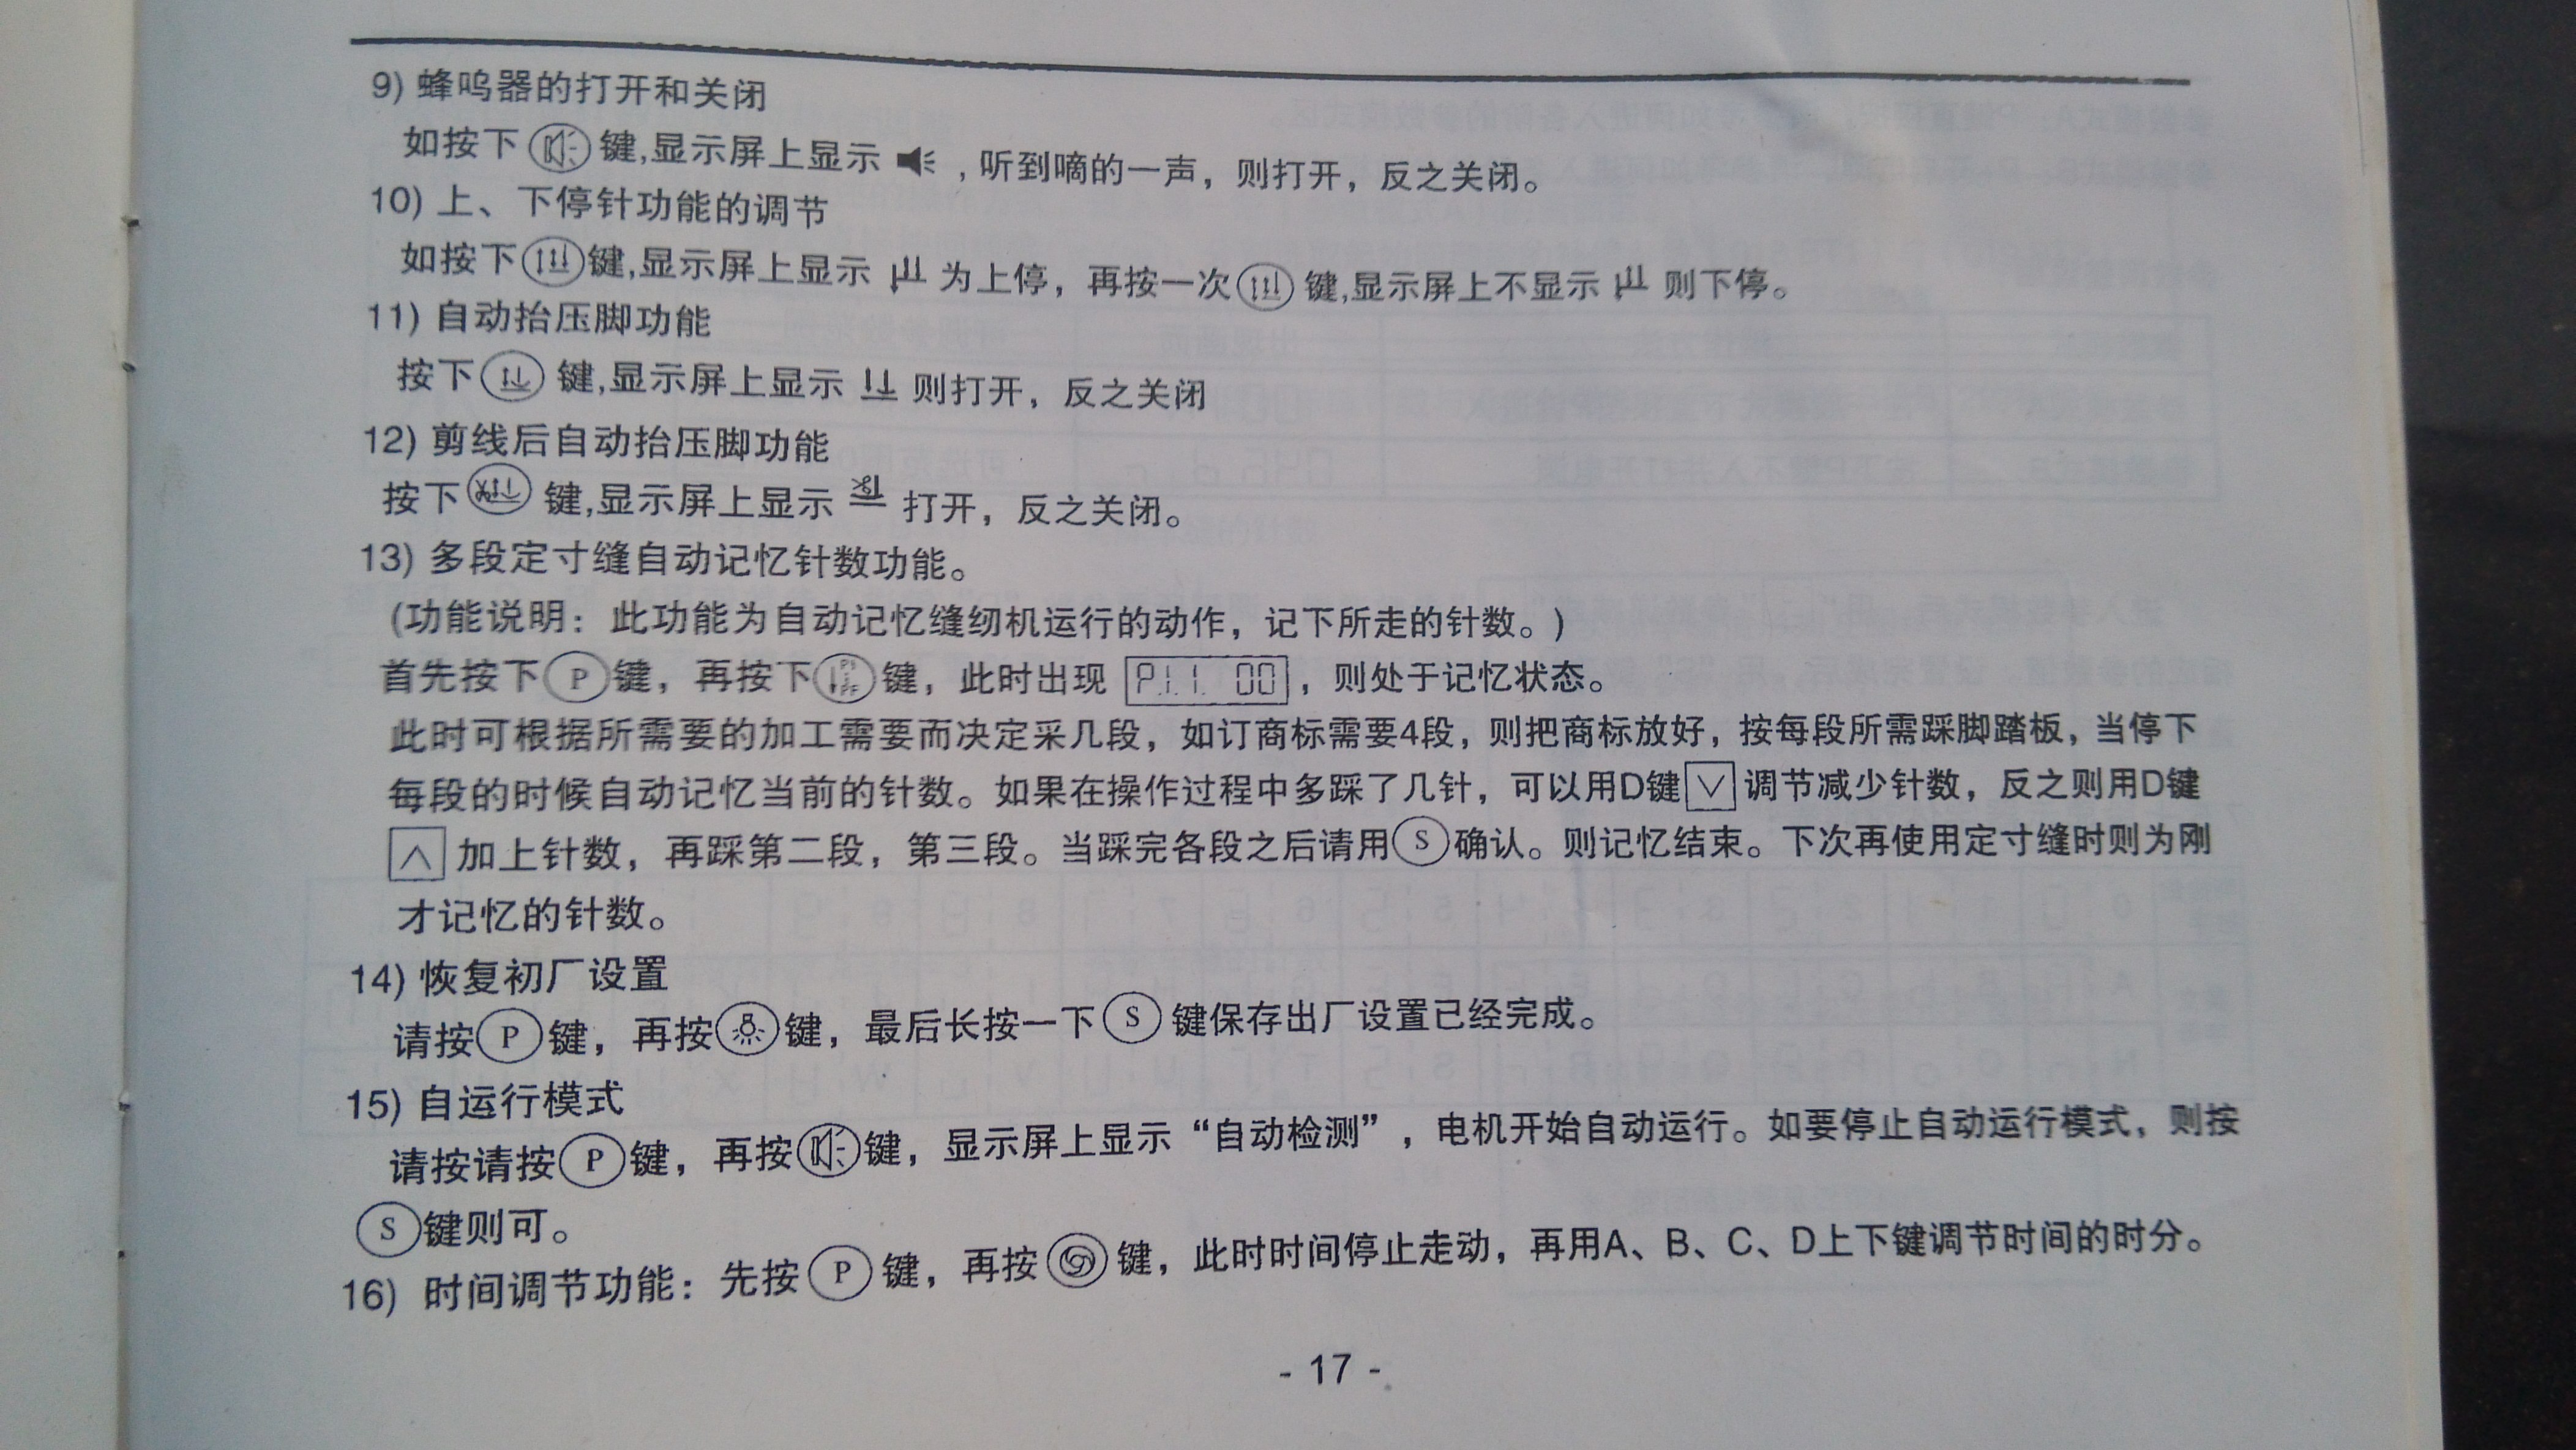 9) 蜂呜器的打开和关闭
如按下键,显示屏上显示,听到嘀的一声，则打开，反之关闭。
10) 上、下停针功能的调节
如按下键,显示屏上显示为上停，再按一次键,显示屏上不显示则下停。
11) 自动抬压脚功能
按下键,显示屏上显示则打开，反之关闭
12) 剪线后自动抬压脚功能
按下键,显示屏上显示打开，反之关闭。
13) 多段定寸缝自动记忆针数功能。
(功能说明：此功能为自动记忆缝纫机运行的动作，记下所走的针数。)
首先按下P键，再按下键，此时出现P.1.1. 00，则处于记忆状态。
此时可根据所需要的加工需要而决定采几段，如订商标需要4段，则把商标放好，按每段所需踩脚踏板，当停下
每段的时候自动记忆当前的针数。如果在操作过程中多踩了几针，可以用D键∨调节减少针数，反之则用D键
∧加上针数，再踩第二段，第三段。当踩完各段之后请用S确认。则记忆结束。下次再使用定寸缝时则为刚
才记忆的针数。
14) 恢复初厂设置
请按P键，再按键，最后长按一下S键保存出厂设置已经完成。
15) 自运行模式
请按请按P键，再按键，显示屏上显示“自动检测”，电机开始自动运行。如要停止自动运行模式，则按
S键则可。
16) 时间调节功能：先按P键，再按键，此时时间停止走动，再用A、B、C、D上下键调节时间的时分。
- 17 -